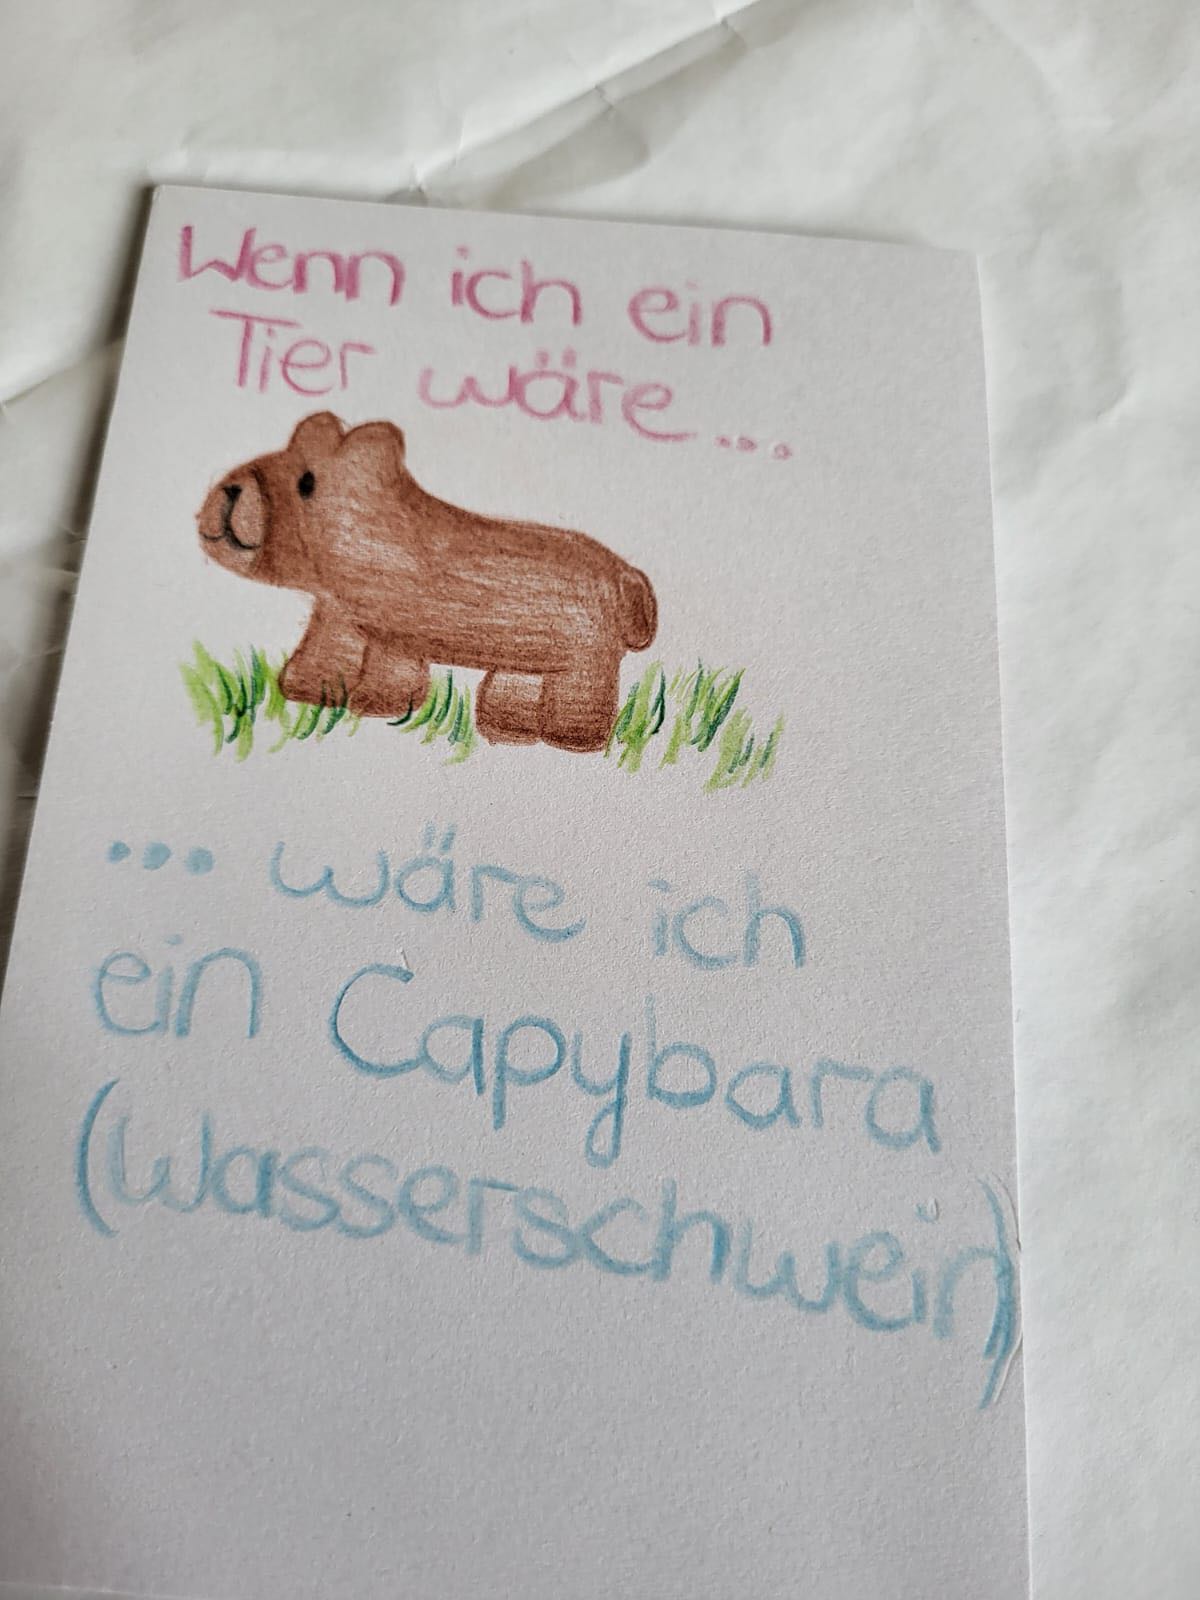 Wenn ich ein
Tier wäre...
... wäre ich
ein Capybara
(Wasserschwein)